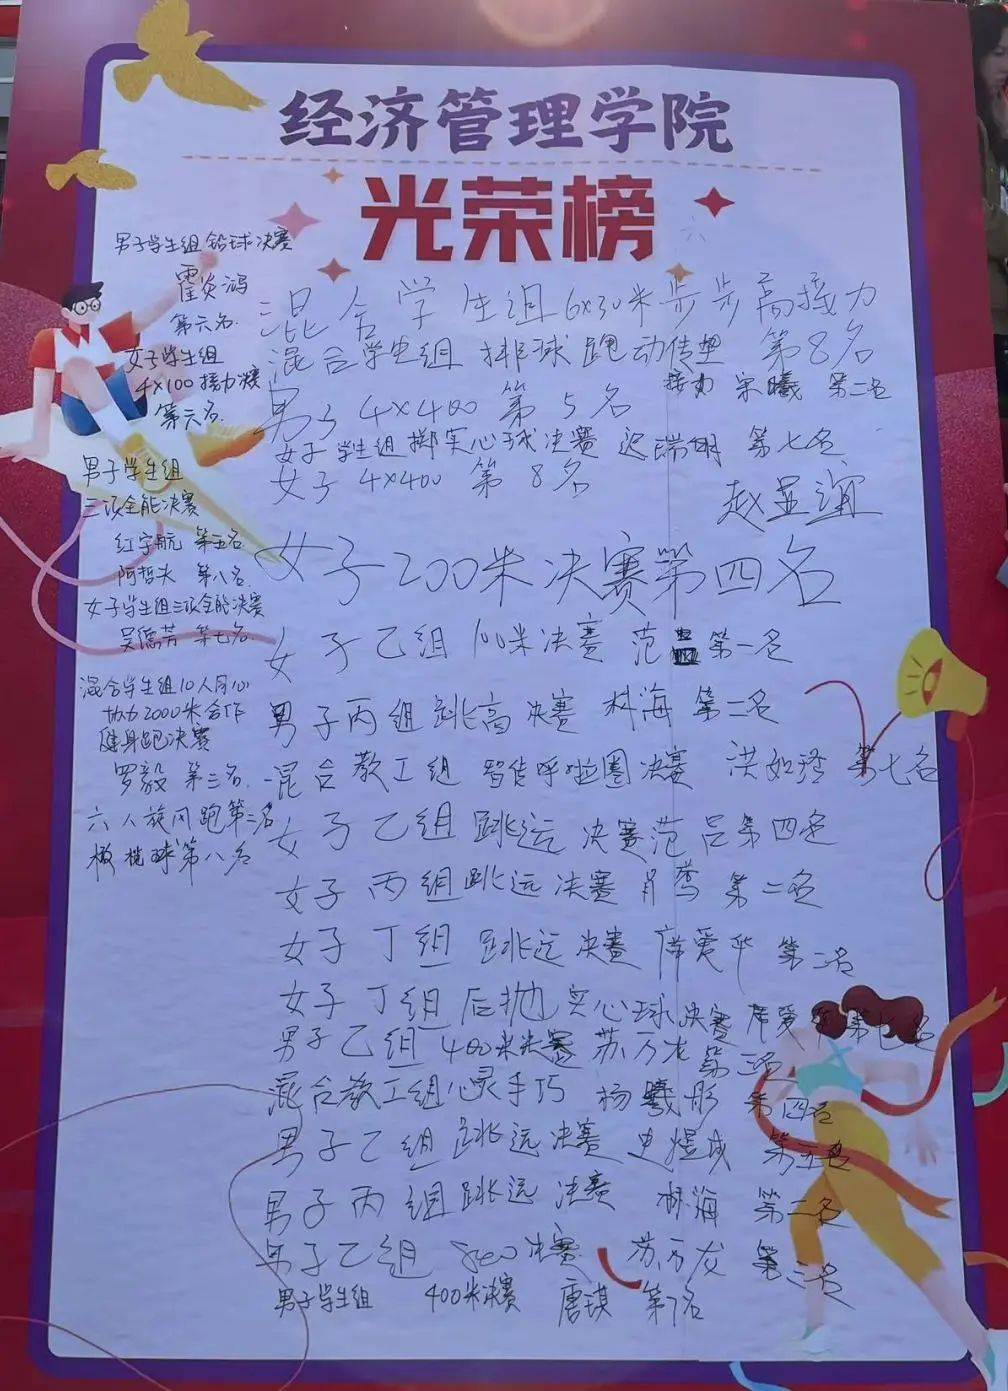 经济管理学院
光荣榜
男子学生组铅球决赛
霍炎鸿
第六名
女子学生组
4×100接力赛
第六名
男子学生组
三项全能决赛
红宇航 第五名
阿哲夫 第八名
女子学生组三项全能决赛
吴儒芳 第七名
混合学生组10人同心
协力2000米合作
健身跑决赛
罗毅 第三名
六人旋风跑第二名
橄榄球第八名
六
混合学生组6×30米步步高接力
混合学生组 排球跑动传垫 第8名
接力 宋曦 第二名
男子4×400 第5名
女子学生组掷实心球决赛 迟瑞明 第七名
女子4×400 第8名
赵显涵
女子200米决赛第四名
女子乙组100米决赛 范 第一名
男子丙组跳高决赛 林海 第二名
混合教工组 智传呼啦圈决赛 洪如 第七名
女子乙组跳远决赛范吕第四名
女子丙组跳远决赛 肖莺 第二名
女子丁组跳远决赛 席爱华 第二名
女子丁组后抛实心球决赛 席爱华第七名
男子乙组400米决赛苏万龙第三名
混合教工组心灵手巧 杨曦彤 第四名
男子乙组跳远决赛 史煜成 第五名
男子丙组跳远决赛 林海 第二名
男子乙组 800决赛 苏万龙 第三名
男子学生组 400米决赛 唐琪 第7名